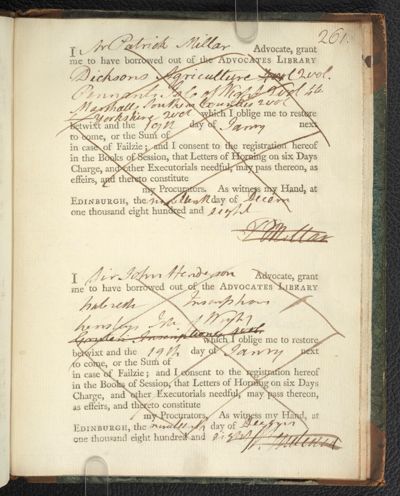 261.
I Mr Patrick Millar Advocate, grant
me to have borrowed out of the ADVOCATES LIBRARY
Dicksons Agriculture 2 vol.
Pennants Isle of Wight 2 vol 4to
Marshalls Southern Counties 2 vol
Yorkshire 2 vol which I oblige me to restore
betwixt and the 19th day of Janry next
to come, or the Sum of
in case of Failzie; and I consent to the registration hereof
in the Books of Session, that Letters of Horning on six Days
Charge, and other Executorials needful, may pass thereon, as
effeirs, and thereto constitute
my Procurators. As witness my Hand, at
EDINBURGH, the nineteenth day of Decem
one thousand eight hundred and eight
P Millar
I Sir John Henderson Advocate, grant
me to have borrowed out of the ADVOCATES LIBRARY
Inscriptions
Isle Wight
which I oblige me to restore
betwixt and the 19th day of Janry next
to come, or the Sum of
in case of Failzie; and I consent to the registration hereof
in the Books of Session, that Letters of Horning on six Days
Charge, and other Executorials needful, may pass thereon,
as effeirs, and thereto constitute
my Procurators. As witness my Hand, at
EDINBURGH, the nineteenth day of
one thousand eight hundred and eight